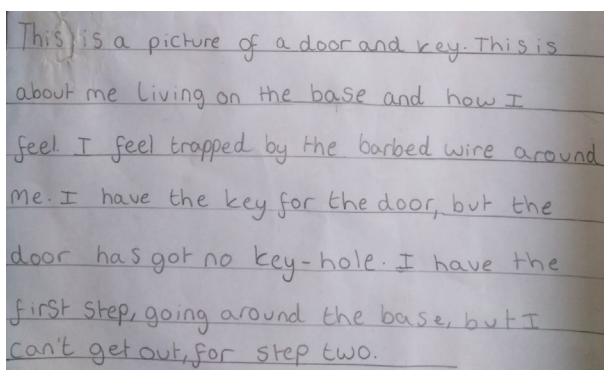 This is a picture of a door and key. This is
about me living on the base and how I
feel. I feel trapped by the barbed wire around
me. I have the key for the door, but the
door has got no key-hole. I have the
first step, going around the base, but I
can't get out, for step two.